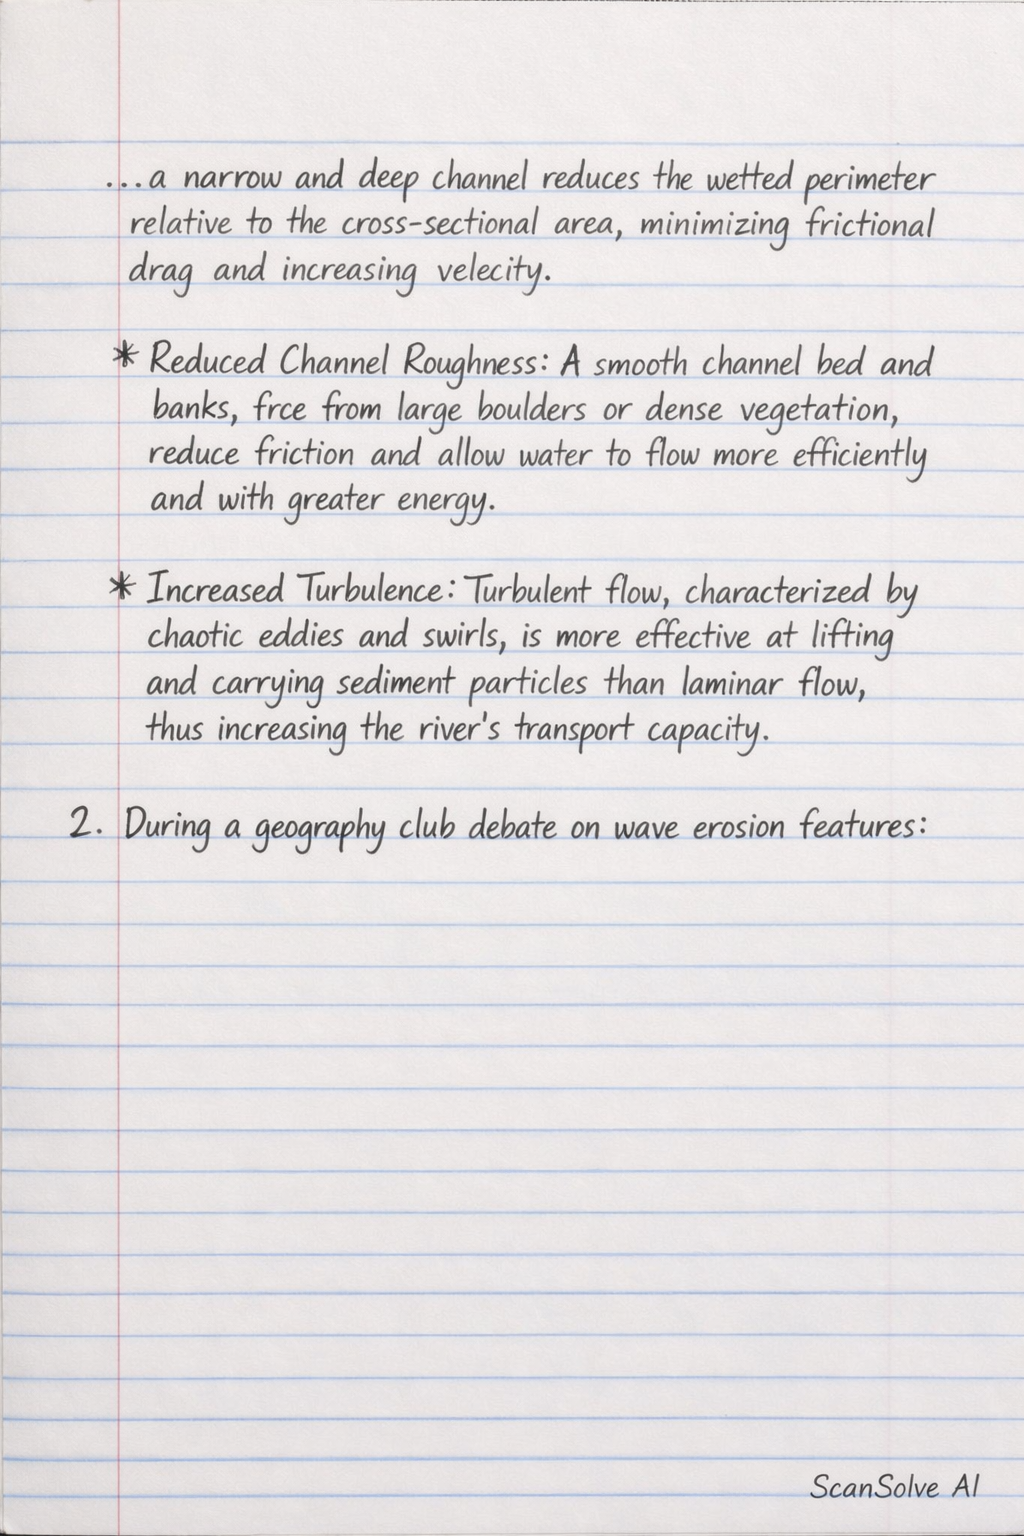 ...a narrow and deep channel reduces the wetted perimeter
relative to the cross-sectional area, minimizing frictional
drag and increasing velecity.
* Reduced Channel Roughness: A smooth channel bed and
banks, frce from large boulders or dense vegetation,
reduce friction and allow water to flow more efficiently
and with greater energy.
* Increased Turbulence: Turbulent flow, characterized by
chaotic eddies and swirls, is more effective at lifting
and carrying sediment particles than laminar flow,
thus increasing the river's transport capacity.
2. During a geography club debate on wave erosion features:
ScanSolve AI